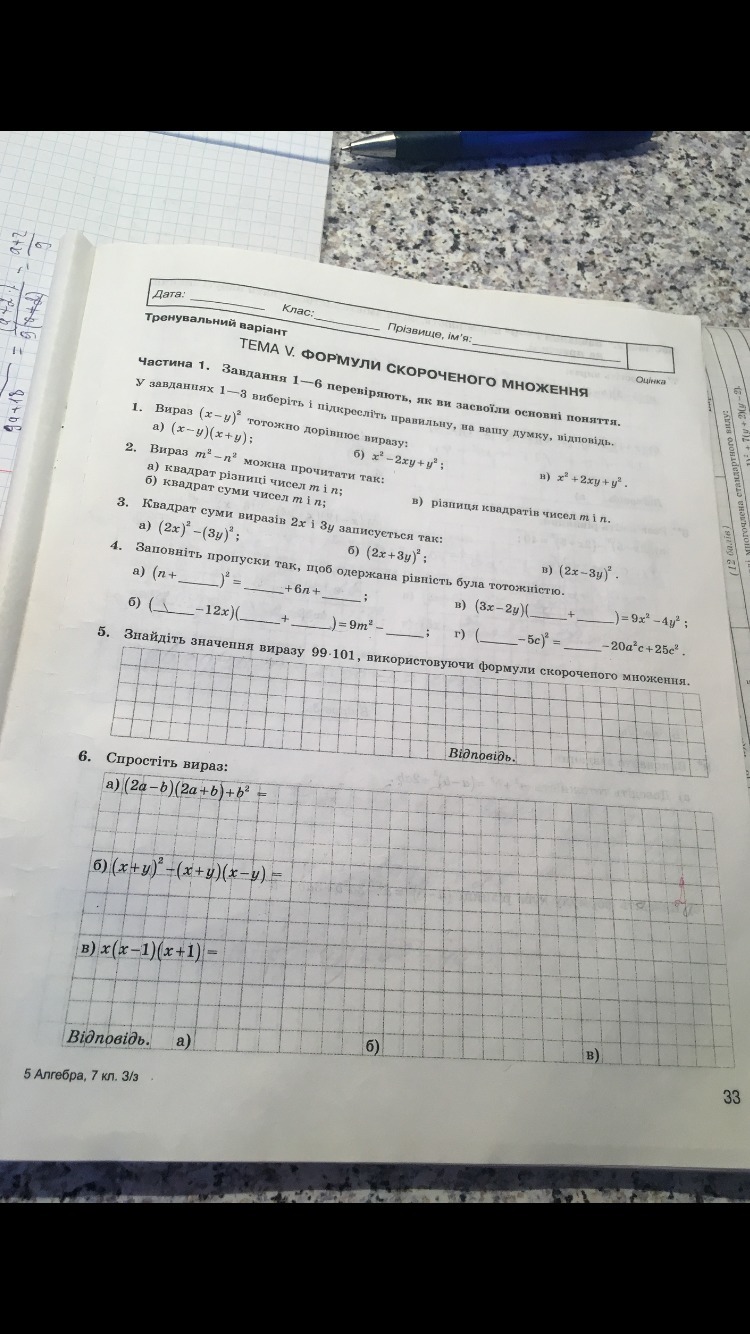 Дата: ________ Клас: ________ Прізвище, ім'я: ________
Оцінка
Тренувальний варіант
ТЕМА V. ФОРМУЛИ СКОРОЧЕНОГО МНОЖЕННЯ
Частина 1. Завдання 1—6 перевіряють, як ви засвоїли основні поняття.
У завданнях 1—3 виберіть і підкресліть правильну, на вашу думку, відповідь.
1. Вираз (x−y)² тотожно дорівнює виразу:
а) (x−y)(x+y); б) x²−2xy+y²; в) x²+2xy+y².
2. Вираз m²−n² можна прочитати так:
а) квадрат різниці чисел m і n;
б) квадрат суми чисел m і n; в) різниця квадратів чисел m і n.
3. Квадрат суми виразів 2x і 3y записується так:
а) (2x)²−(3y)²; б) (2x+3y)²; в) (2x−3y)².
4. Заповніть пропуски так, щоб одержана рівність була тотожністю.
а) (n+_____)²=_____+6n+_____; в) (3x−2y)(_____+_____)=9x²−4y²;
б) (_____−12x)(_____+_____)=9m²−_____; г) (_____−5c)²=_____−20a²c+25c².
5. Знайдіть значення виразу 99·101, використовуючи формули скороченого множення.
Відповідь.
6. Спростіть вираз:
а) (2a−b)(2a+b)+b² =
б) (x+y)²−(x+y)(x−y) =
в) x(x−1)(x+1) =
Відповідь. а) б) в)
5 Алгебра, 7 кл. З/з
33
(12 балів)
многочлена стандартного виду: